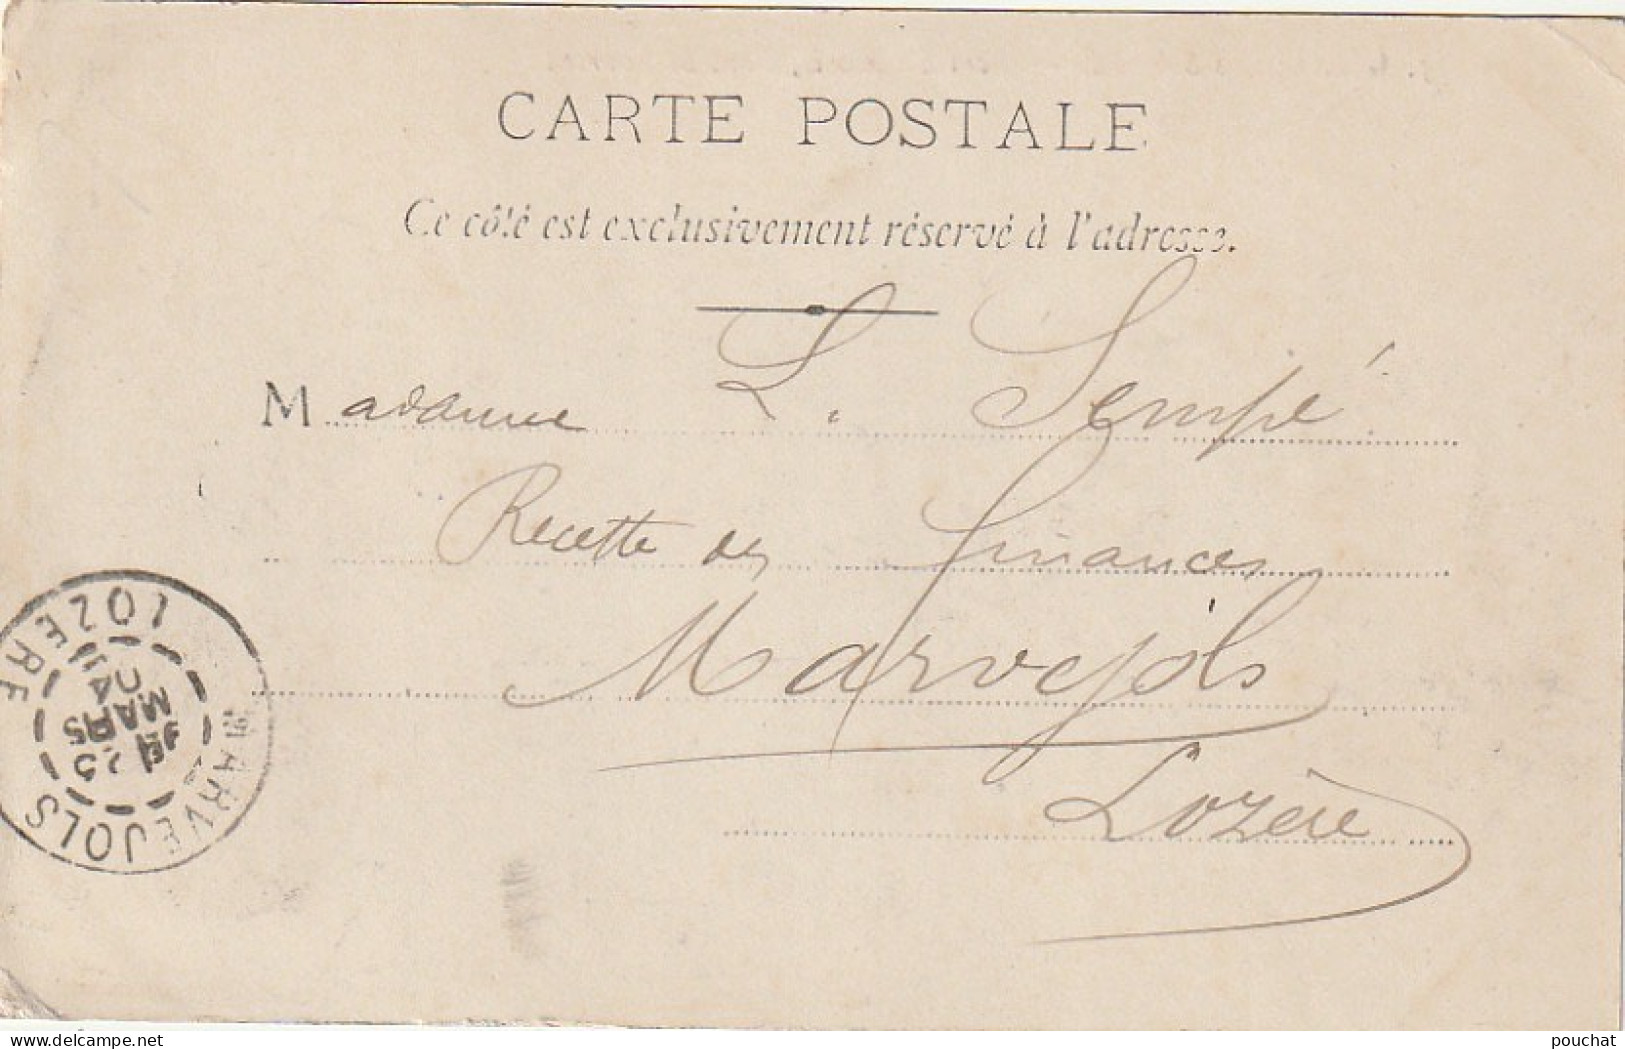 CARTE POSTALE
Ce côté est exclusivement réservé à l'adresse.
Madame L. Sempé
Recette des Finances
Marvejols
Lozère
MARVEJOLS
LOZERE
25
MARS
04
delcampe.net
pouchat